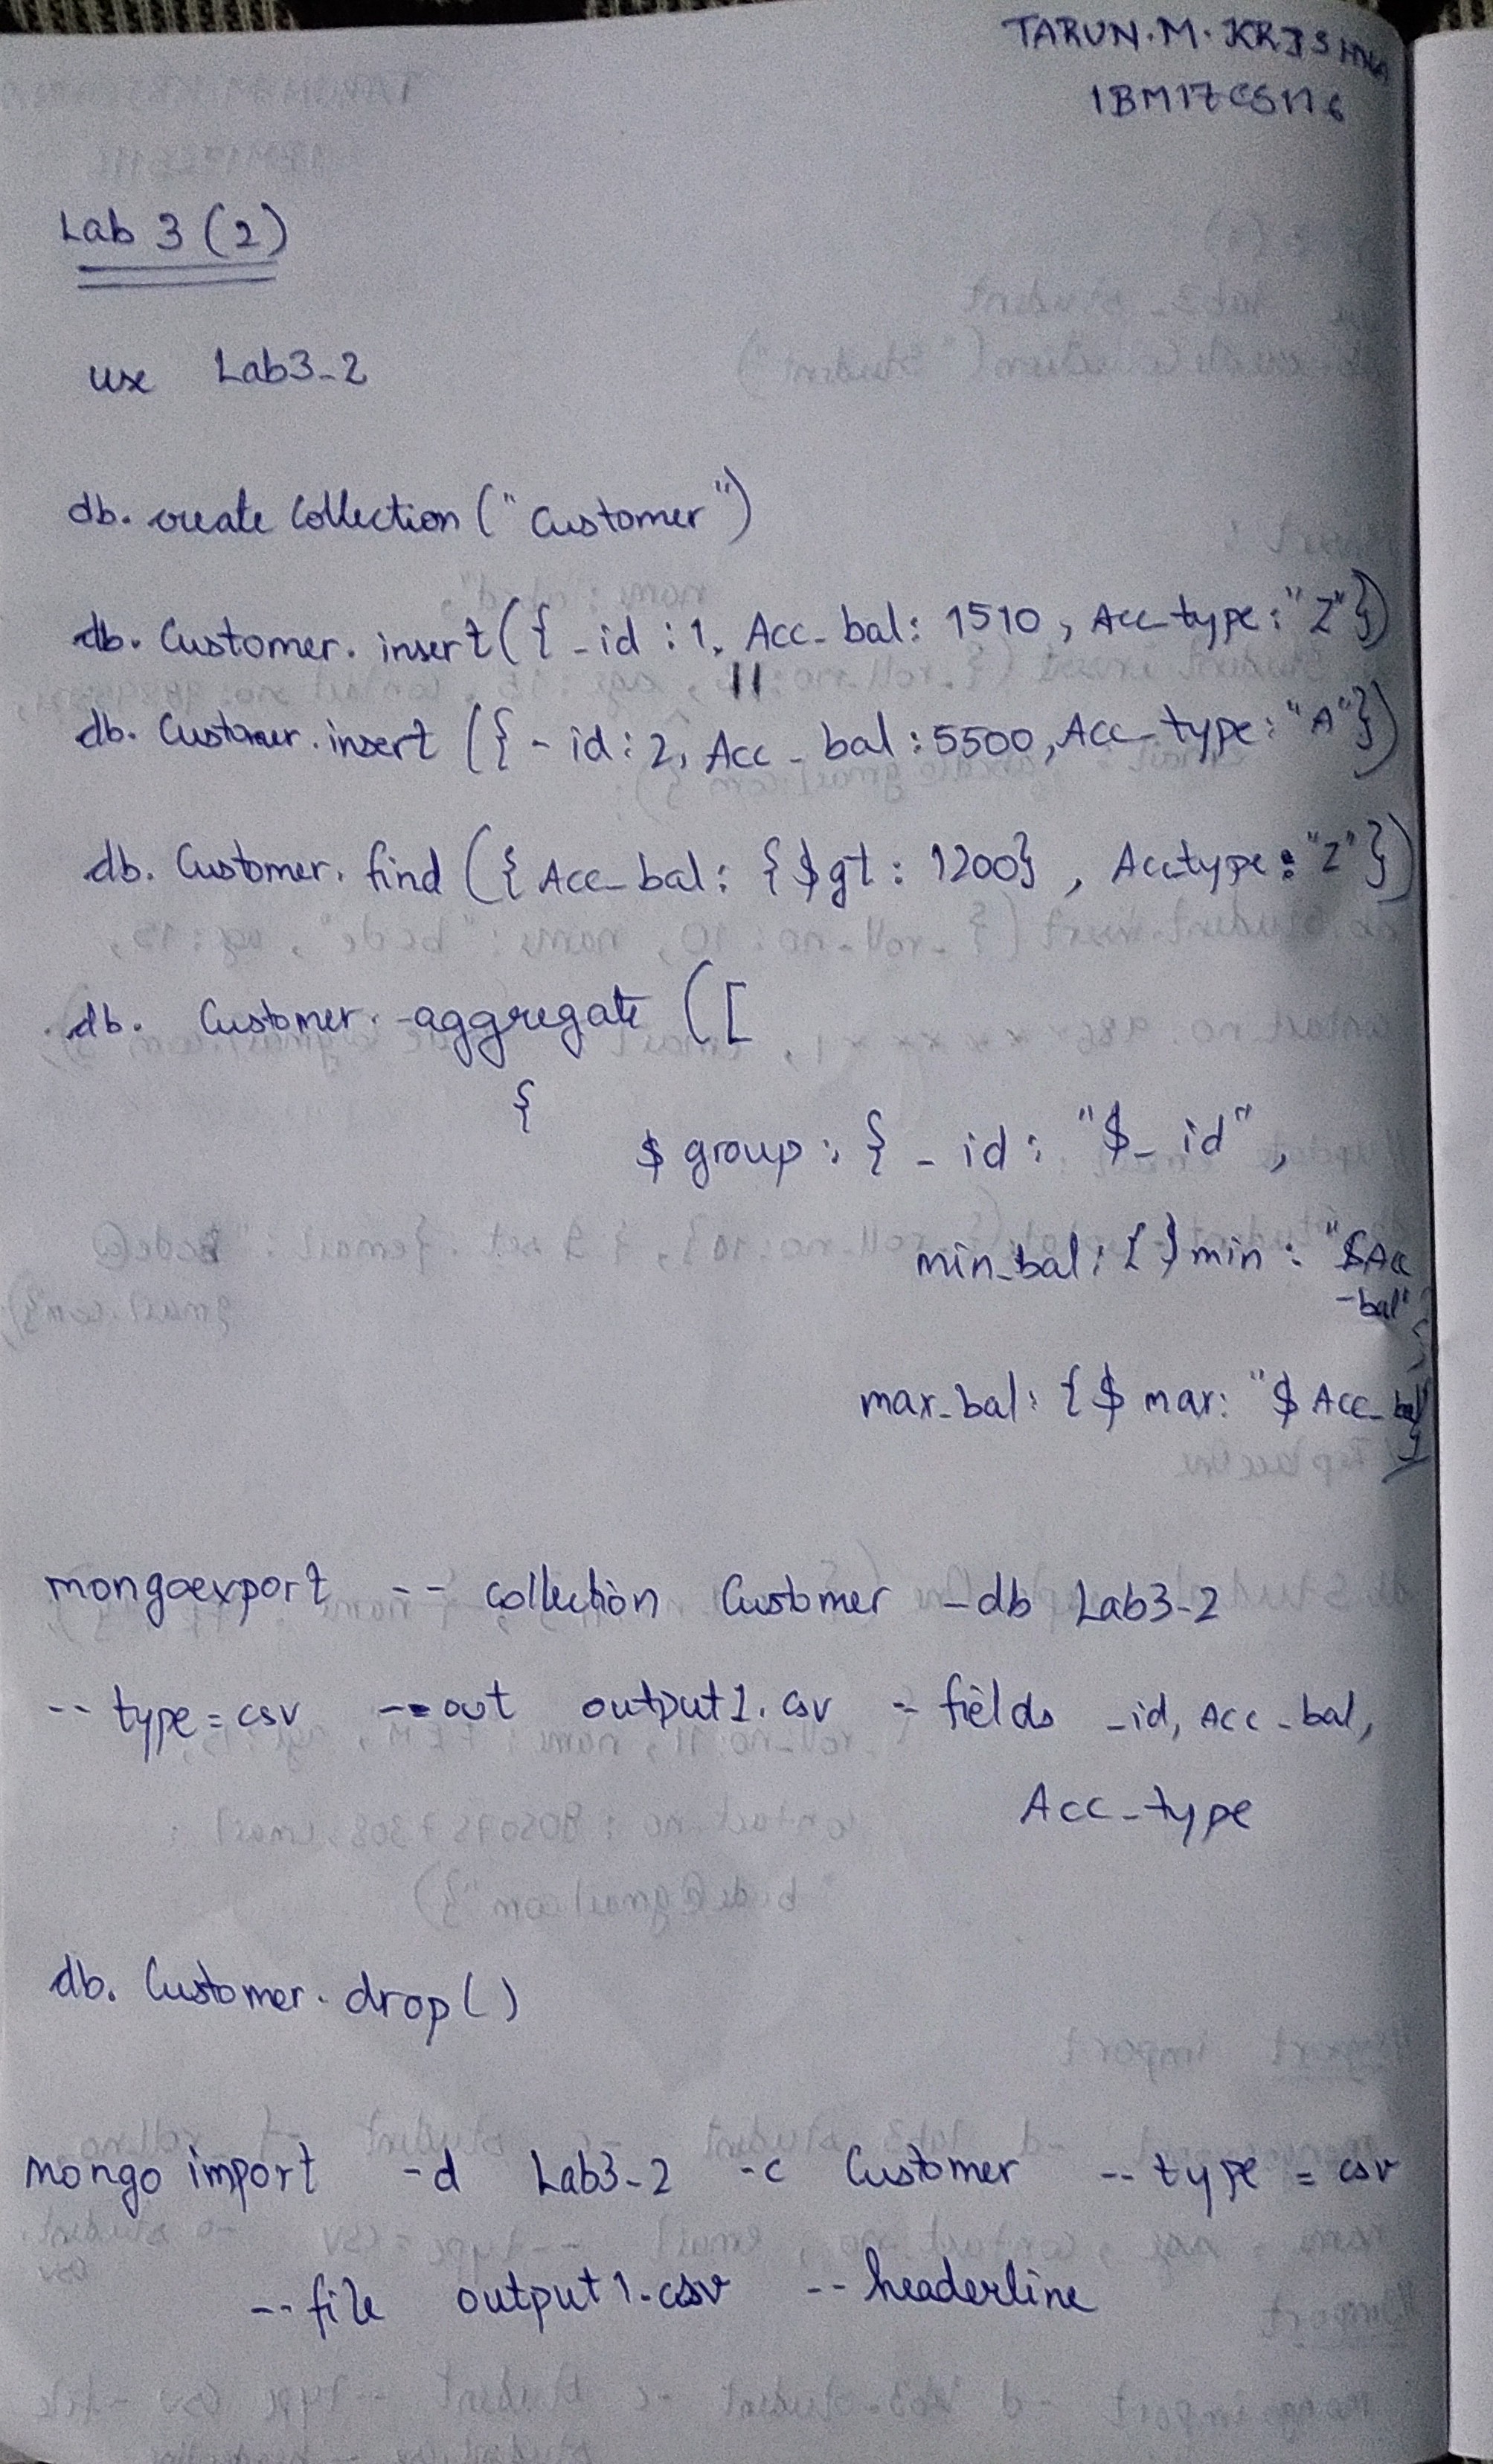 TARUN.M.KRISHNA
1BM17CS116
Lab 3 (2)
use Lab3_2
db. create Collection ("Customer")
db. Customer. insert({ _id : 1, Acc_bal: 1510 , Acc_type: "Z"})
db. Customer. insert ({ _ id : 2, Acc _ bal : 5500, Acc_type: "A"})
db. Customer. find ({ Acc_bal: { $gt : 1200} , Acc_type : "Z" })
db. Customer. aggregate ([
{
$ group : { _ id : "$_ id" ,
min_bal: { $min : "$Acc
_bal"},
max_bal: { $ max: "$ Acc_bal"}
mongoexport -- collection Customer -db Lab3-2
-- type = csv -- out output1. csv - fields _id, Acc _ bal,
Acc_type
db. Customer. drop()
mongo import -d Lab3_2 -c Customer -- type = csv
-- file output1.csv -- headerline